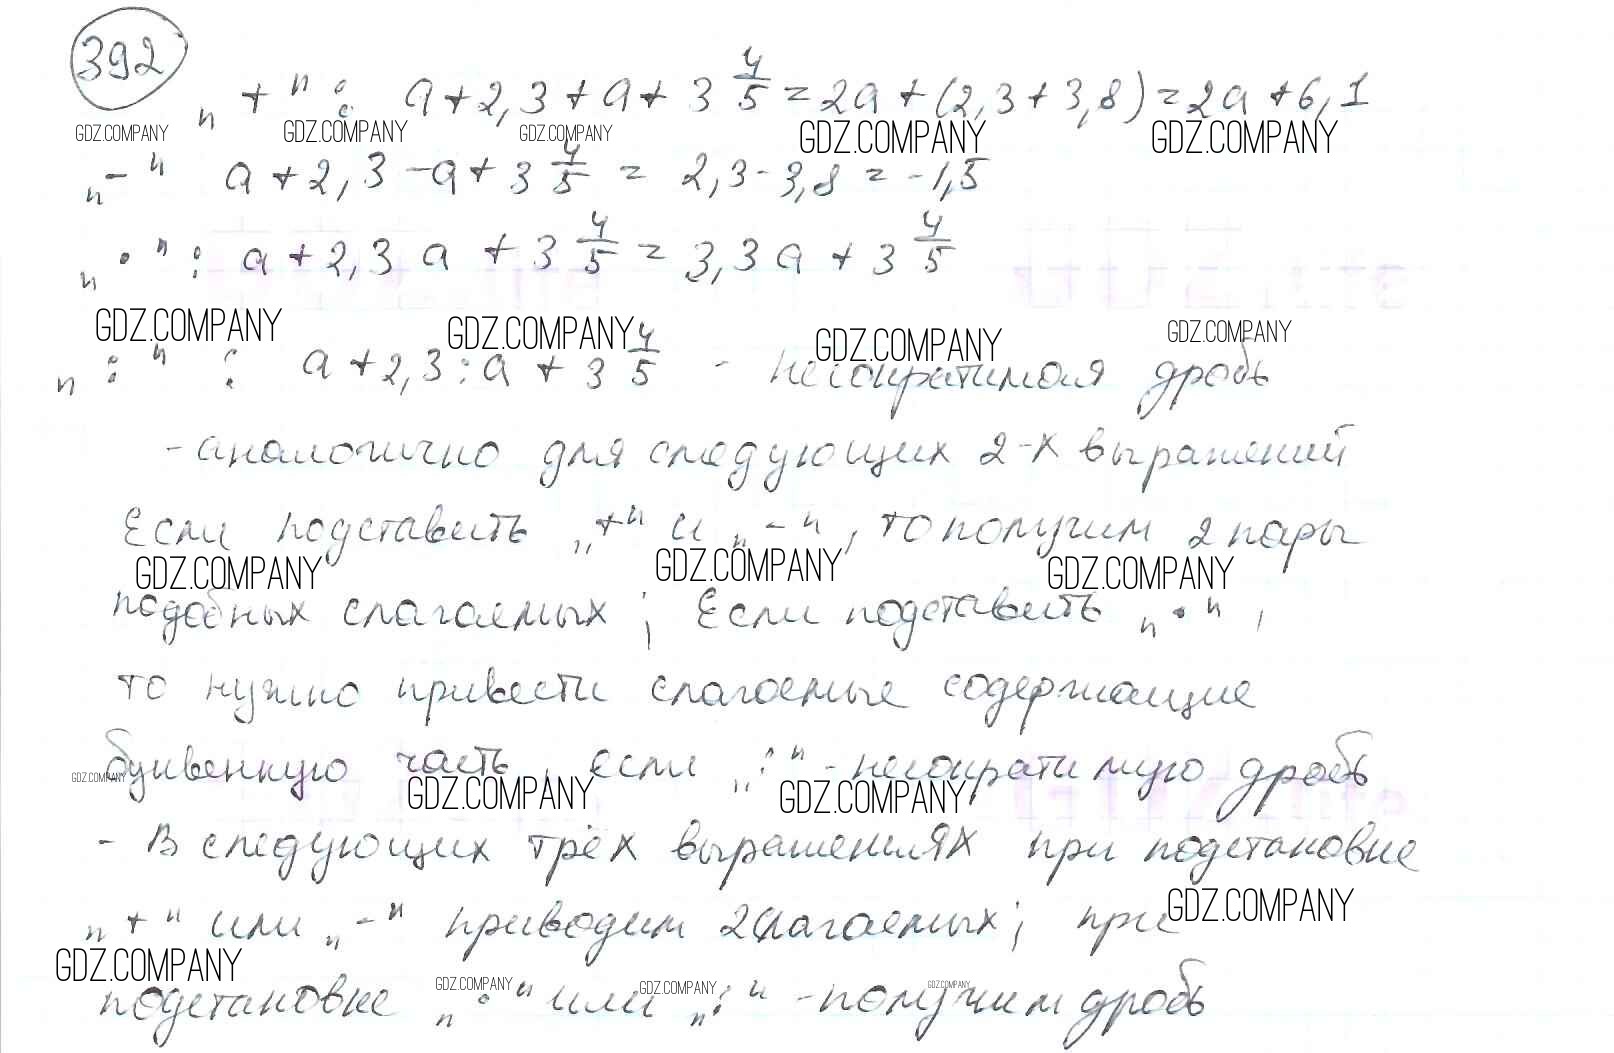 392
„+“: a + 2,3 + a + 3 4/5 = 2a + (2,3 + 3,8) = 2a + 6,1
GDZ.COMPANY GDZ.COMPANY GDZ.COMPANY GDZ.COMPANY GDZ.COMPANY
„-“ a + 2,3 - a + 3 4/5 = 2,3 - 3,8 = -1,5
„·“: a + 2,3 a + 3 4/5 = 3,3 a + 3 4/5
GDZ.COMPANY GDZ.COMPANY GDZ.COMPANY GDZ.COMPANY
„:“ : a + 2,3 : a + 3 4/5 - несократимая дробь
- аналогично для следующих 2-х выражений
Если подставить „+“ и „-“, то получим 2 пары
GDZ.COMPANY GDZ.COMPANY GDZ.COMPANY
подобных слагаемых; Если подставить „·“,
то нужно привести слагаемые содержащие
буквенную часть, если „:“ - несократимую дробь
GDZ.COMPANY GDZ.COMPANY GDZ.COMPANY
- В следующих трёх выражениях при подстановке
„+“ или „-“ приводим 2 слагаемых; при
GDZ.COMPANY
GDZ.COMPANY
подстановке „·“ или „:“ - получим дробь
GDZ.COMPANY GDZ.COMPANY GDZ.COMPANY